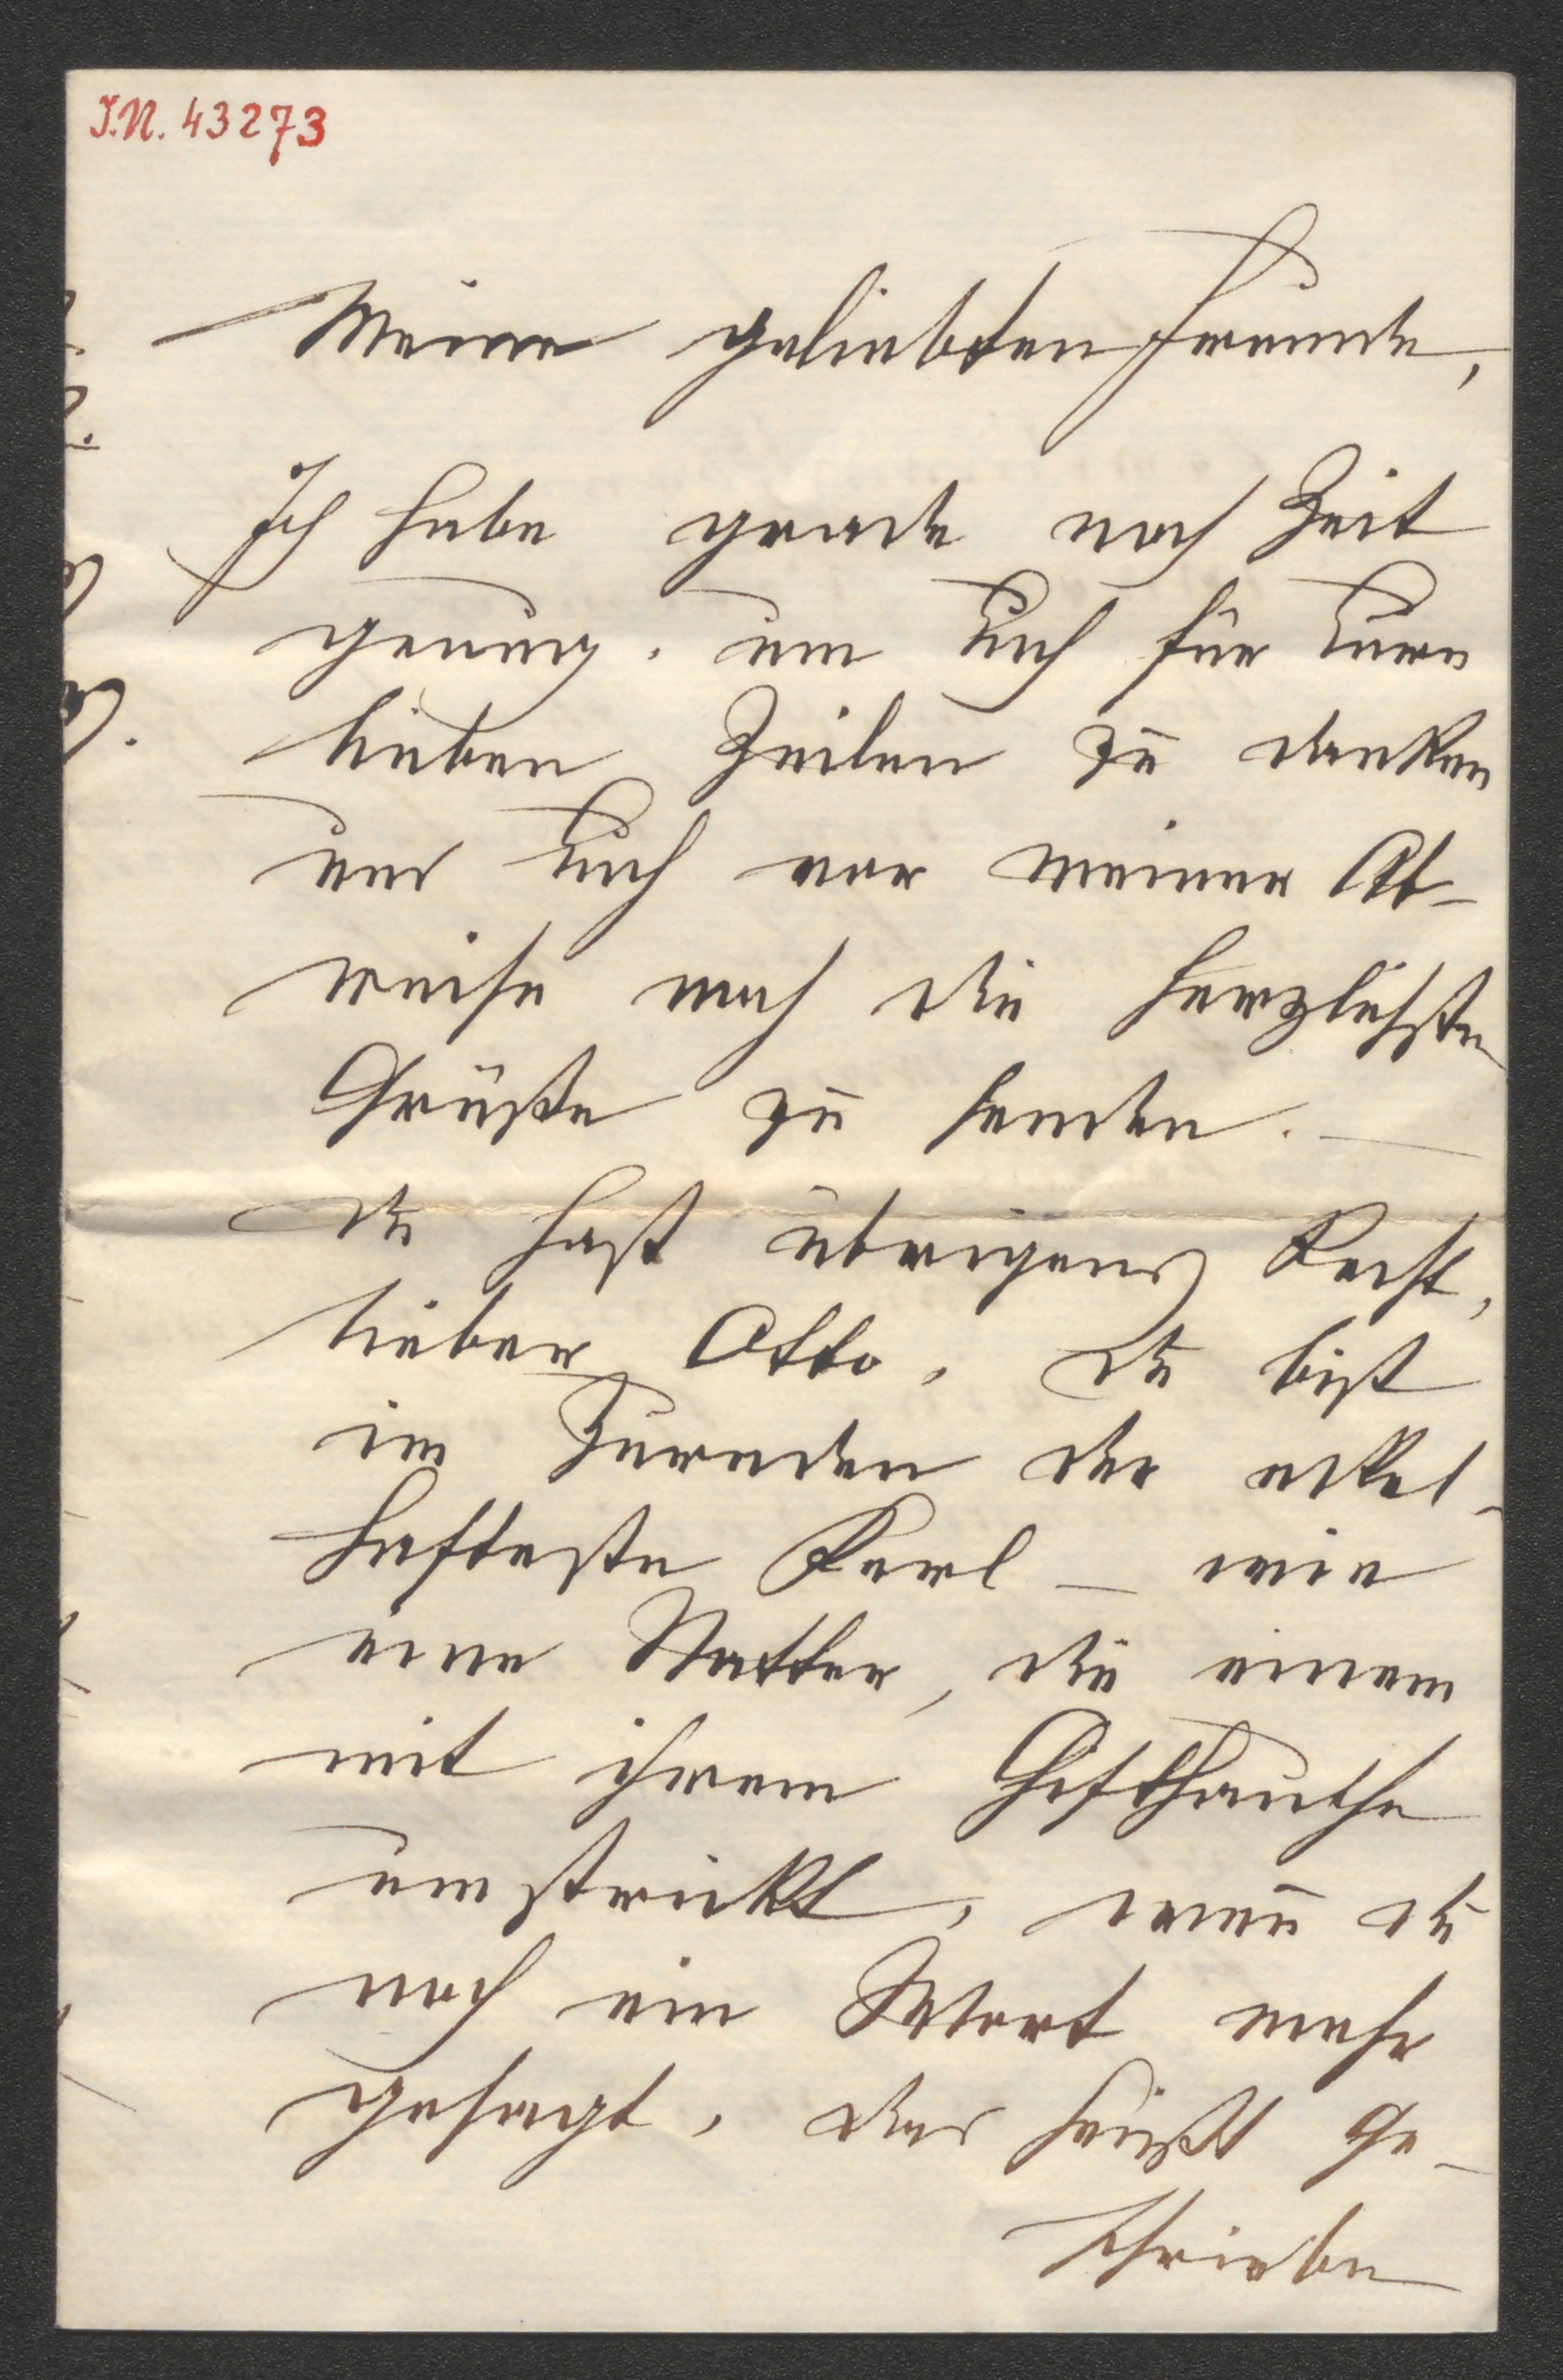 J.N. 43273
Meine geliebten Freunde,
Ich habe grade noch Zeit
genug, um Euch für Eure
lieben Zeilen zu danken
und Euch vor meiner Ab-
reise noch die herzlichsten
Grüße zu senden. —
Du hast übrigens Recht,
lieber Otto, Du bist
im der ekel-
hafteste Kerl — wie
eine Natter, die einem
mit ihrem Gifthauche
umstrickt, wenn Du
noch ein Wort mehr
gesagt, das heißt ge-
schrieben